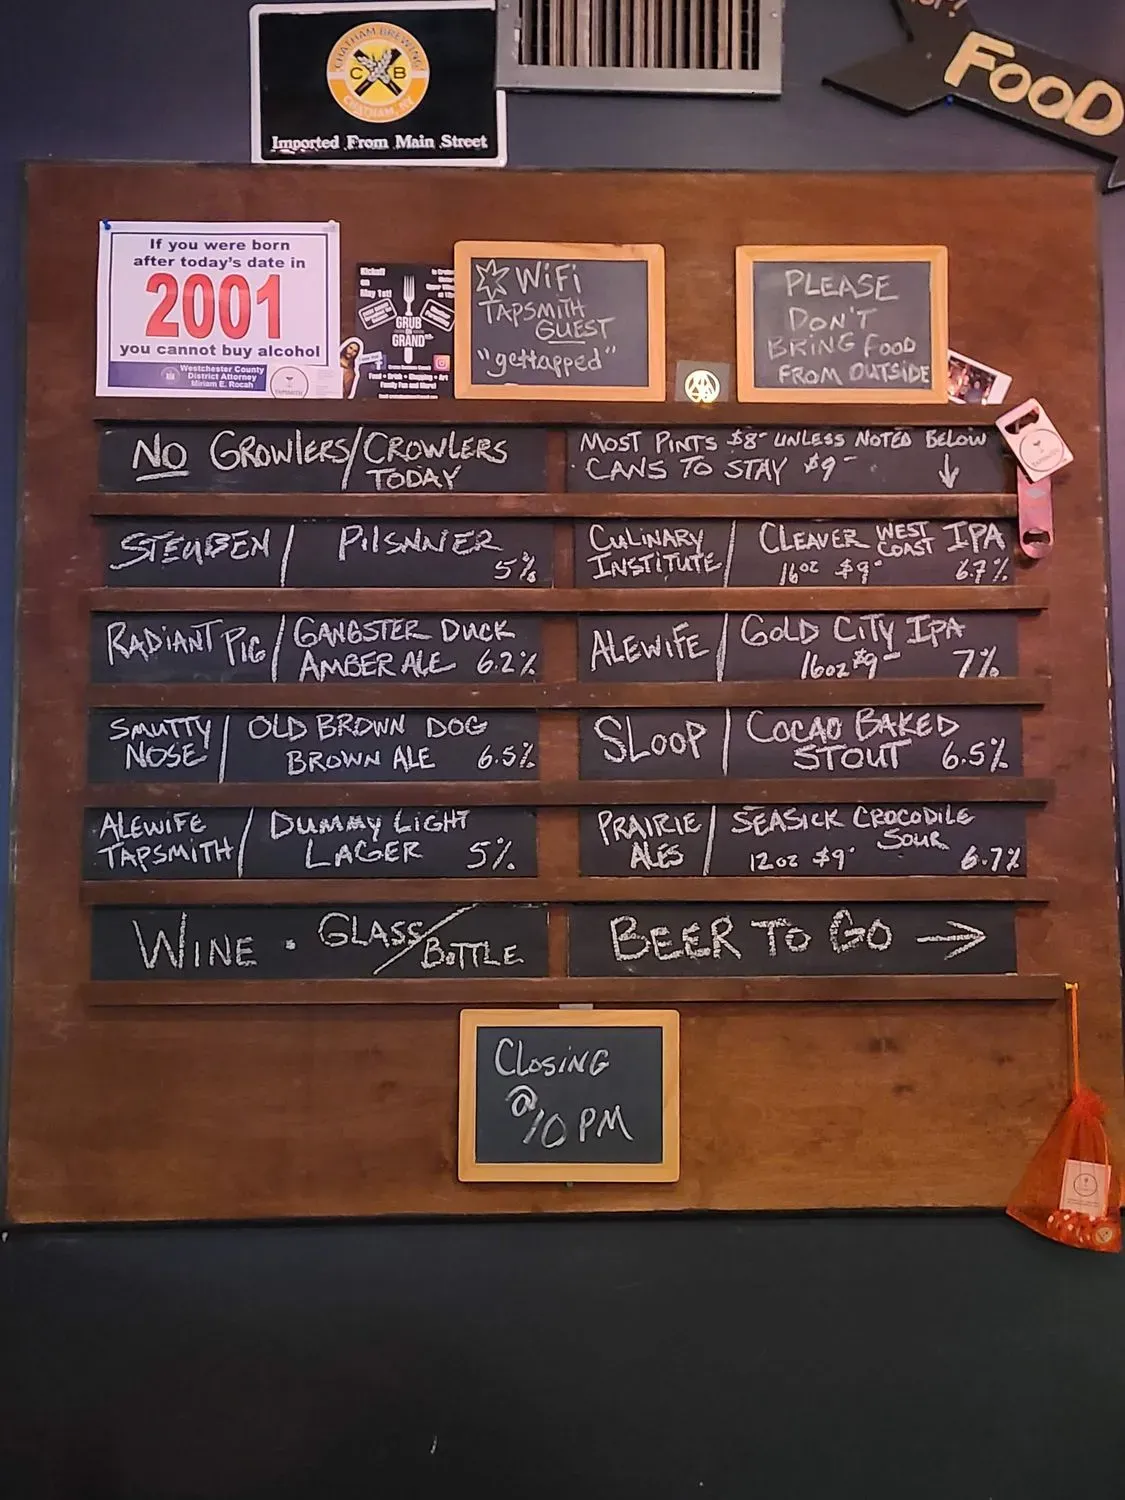 CHATHAM BREWING
C B
CHATHAM, NY
Imported From Main Street
FOOD
If you were born
after today's date in
2001
you cannot buy alcohol
Westchester County
District Attorney
Miriam E. Rocah
Kickoff
on
May 1st!
GRUB
ON
GRAND
Food • Drink • Shopping • Art
Family Fun and More!
WiFi
TAPSMITH
GUEST
"gettapped"
PLEASE
DON'T
BRING FOOD
FROM OUTSIDE
NO GROWLERS/CROWLERS
TODAY
MOST PINTS $8- UNLESS NOTED BELOW
CANS TO STAY $9- ↓
STEUBEN / PILSNNER
5%
CULINARY INSTITUTE / CLEAVER WEST COAST IPA
16oz $9- 6.7%
RADIANT PIG / GANGSTER DUCK
AMBER ALE 6.2%
ALEWIFE / GOLD CITY IPA
16oz $9- 7%
SMUTTY NOSE / OLD BROWN DOG
BROWN ALE 6.5%
SLOOP / COCAO BAKED
STOUT 6.5%
ALEWIFE TAPSMITH / DUMMY LIGHT
LAGER 5%
PRAIRIE ALES / SEASICK CROCODILE
SOUR
12oz $9- 6.7%
WINE • GLASS/BOTTLE
BEER TO GO →
CLOSING
@
10 PM